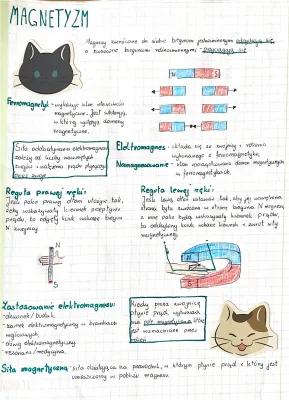 MAGNETYZM
Magnesy zwrócone do siebie biegunami jednoimiennymi odpychają się,
a zwrócone biegunami różnoimiennymi - przyciągają się
N S
Ferromagnetyk - wykazuje silne właściwości
magnetyczne. Jest substancją,
w której występują domeny
magnetyczne.
Siła oddziaływania elektromagnesu
zależy od liczby nawiniętych
zwojów i natężenia prądu płynącego
przez zwoje
Elektromagnes - składa się ze zwojnicy i rdzenia
wykonanego z ferromagnetyku.
Namagnesowanie - stan uporządkowania domen magnetycznych
w ferromagnetykach.
Reguła prawej ręki:
Jeśli prawą dłoń ułożyć tak,
żeby wskazywały kierunek przepływu
prądu, to odgięty kciuk wskaże biegun
N zwojnicy.
N
S
Reguła lewej ręki:
Jeśli lewą dłoń ustawić tak, aby jej wewnętrzna
strona była zwrócona w stronę bieguna N magnesu,
a inne palce będą wskazywały kierunek prądu,
to odchylony kciuk wskaże kierunek i zwrot siły
magnetycznej.
Zastosowanie elektromagnesu:
- dzwonek / budzik
- zamek elektromagnetyczny w bramkach
wejściowych,
- dźwig elektromagnetyczny
- rezonans / medycyna.
Kiedy przez zwojnicę
płynie prąd wytwarza
się pole magnetyczne, które
jest wzmacniane przez
rdzeń
Siła magnetyczna - siła działająca na przewodnik, w którym płynie prąd i który jest
umieszczony w pobliżu magnesu.